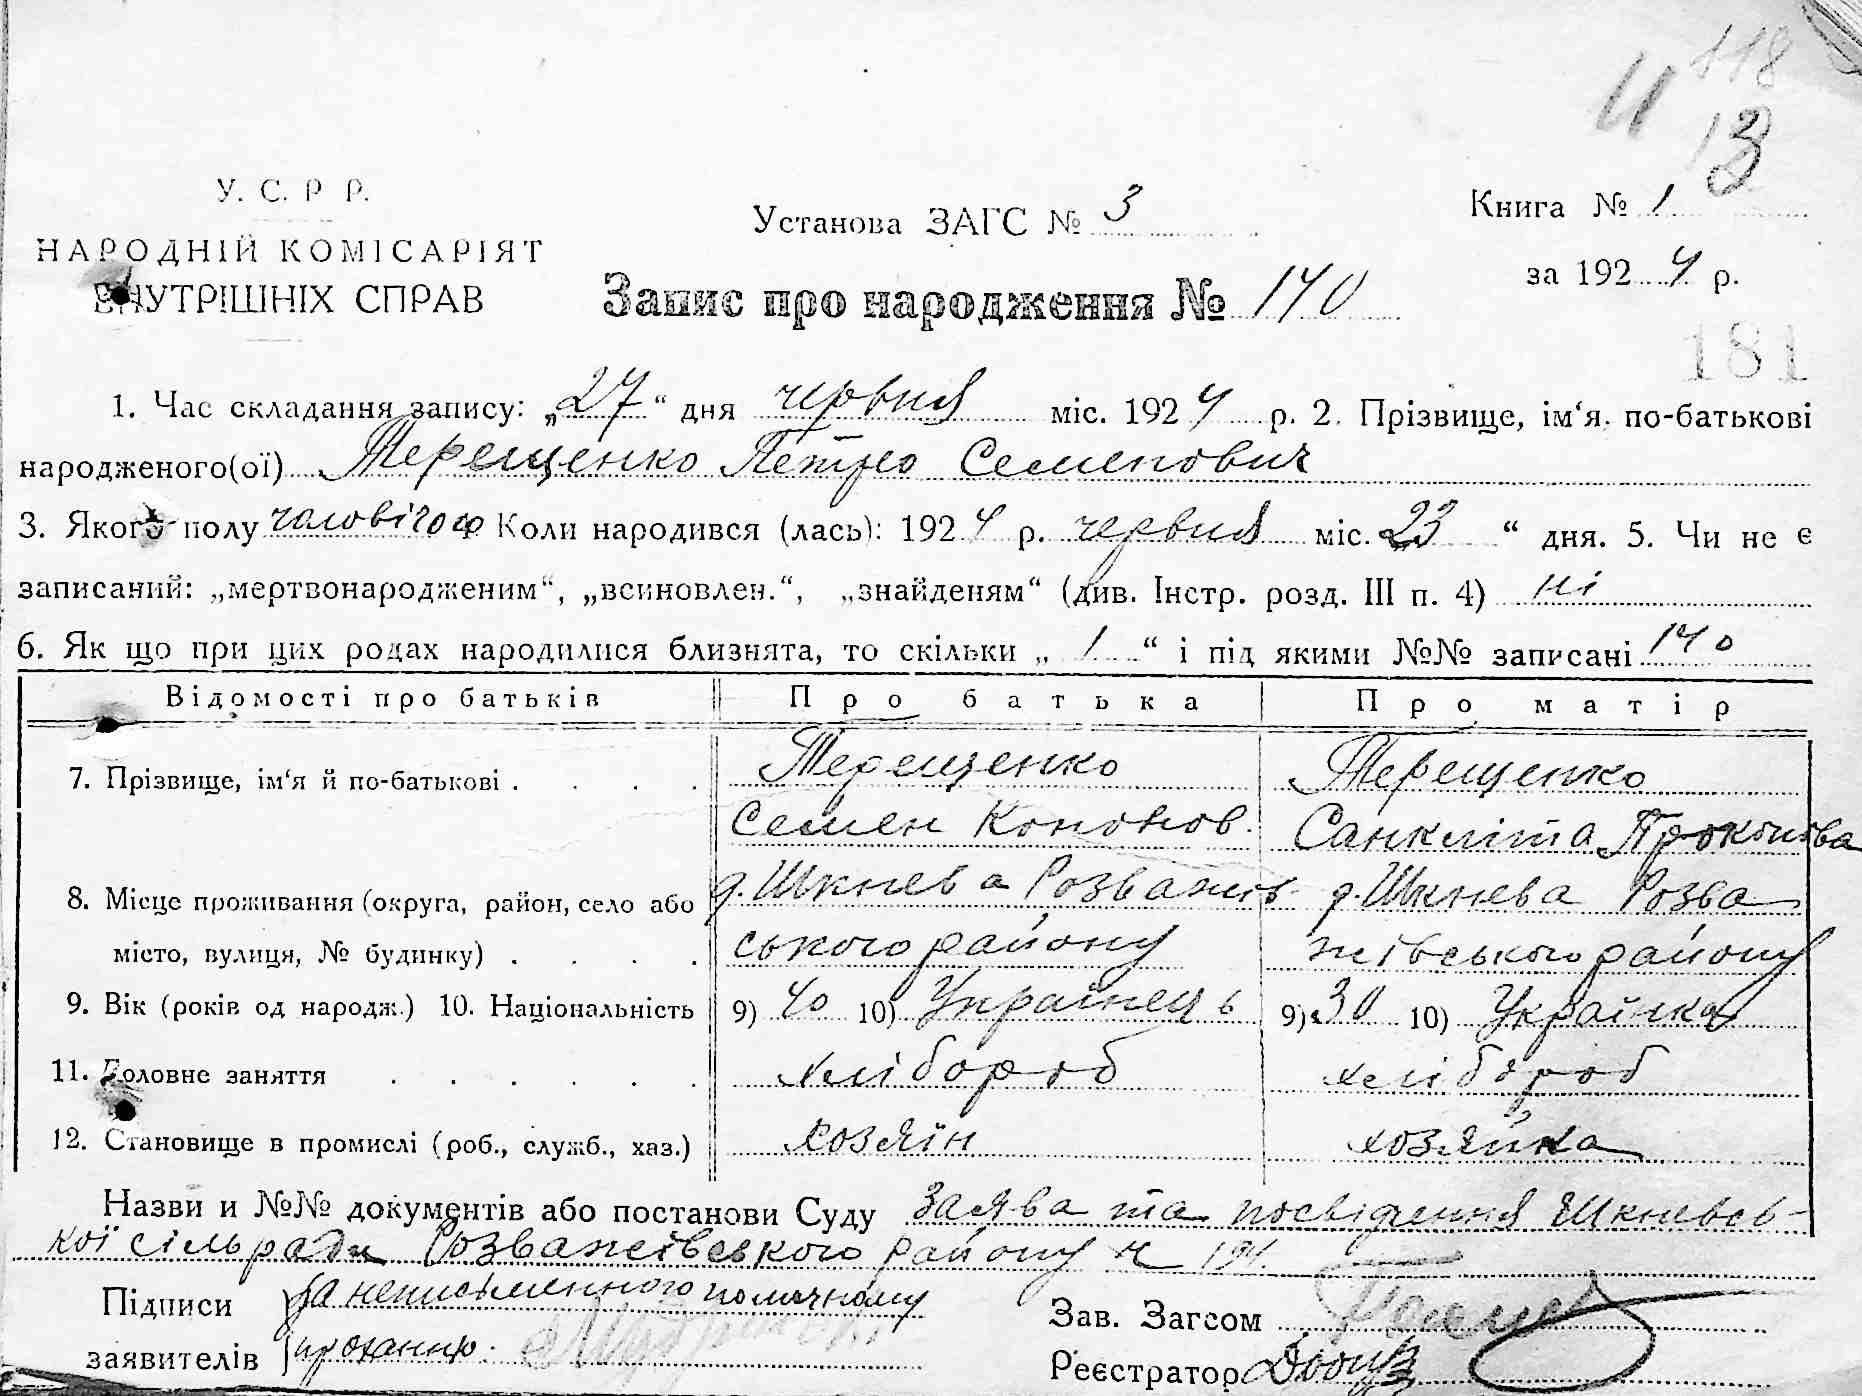 118
И 13
У. С. Р Р.
НАРОДНІЙ КОМІСАРІЯТ
ВНУТРІШНІХ СПРАВ
Установа ЗАГС № 3
Книга № 1
за 1924 р.
Запис про народження № 140
181
1. Час складання запису: „27“ дня червня міс. 1924 р. 2. Прізвище, ім‘я, по-батькові
народженого(ої) Терещенко Петро Семенович
3. Якого полу чоловічого Коли народився (лась): 1924 р. червня міс. 23 “ дня. 5. Чи не є
записаний: „мертвонародженим“, „всиновлен.“, „знайденям“ (див. Інстр. розд. III п. 4) ні
6. Як що при цих родах народилися близнята, то скільки „ 1 “ і під якими №№ записані 140
Відомості про батьків Про батька Про матір
7. Прізвище, ім‘я й по-батькові . . . . Терещенко Терещенко
Семен Кононов. Санкліта Прокопова
8. Місце проживання (округа, район, село або д. Шкнева Розважів- д. Шкнева Розва
місто, вулиця, № будинку) . . . . ського району жівського району
9. Вік (років од народж.) 10. Національність 9) 40 10) Українець 9) 30 10) Українка
11. Головне заняття . . . . . . хлібороб хлібороб
12. Становище в промислі (роб., служб., хаз.) хозяїн хозяйка
Назви и №№ документів або постанови Суду Заява та посвідчення Шкневсь-
кої сільради Розважівського району ч 191.
Підписи За неписьменного помічному
заявителів проханню.
Зав. Загсом
Реєстратор